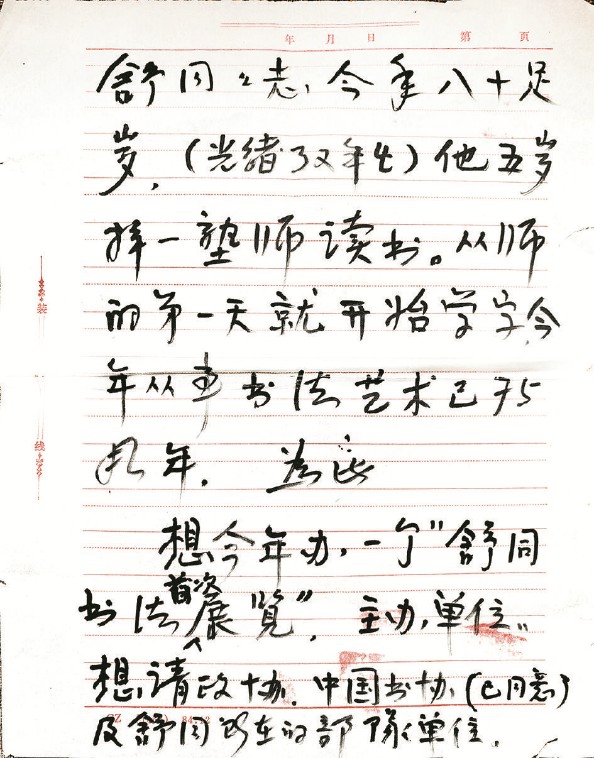 年 月 日 第 页
舒同同志,今年八十足
岁,(光绪 年生)他五岁
择一塾师读书。从师
的第一天就开始学字,今
年从事书法艺术已75
周年。为此
想今年办一个"舒同
书法首次展览",主办单位
想请政协、中国书协(已同意)
及舒同所在的部队单位。
装
线